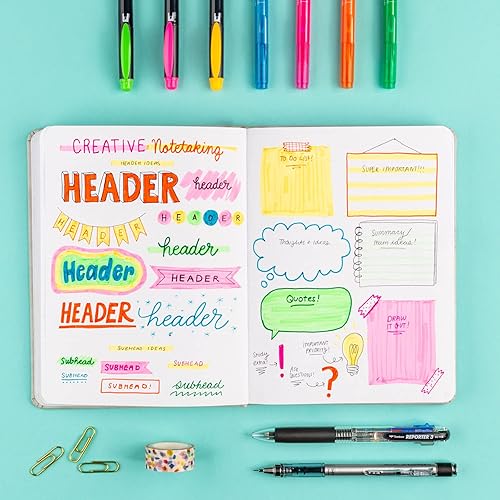 CREATIVE Notetaking
HEADER IDEAS
HEADER header
HEADER
HEADER
header
Header
HEADER
HEADER header
SUBHEAD IDEAS
Subhead
SUBHEAD
SUBHEAD
SUBHEAD
SUBHEAD!
subhead
TO DO LIST!
SUPER IMPORTANT!!!
Thoughts & ideas
Summary/
main ideas!
Quotes!
DRAW
IT OUT!
Study
extra!
IMPORTANT
PRIORITY!
ASK
QUESTIONS!
! ?
Tombow REPORTER 3